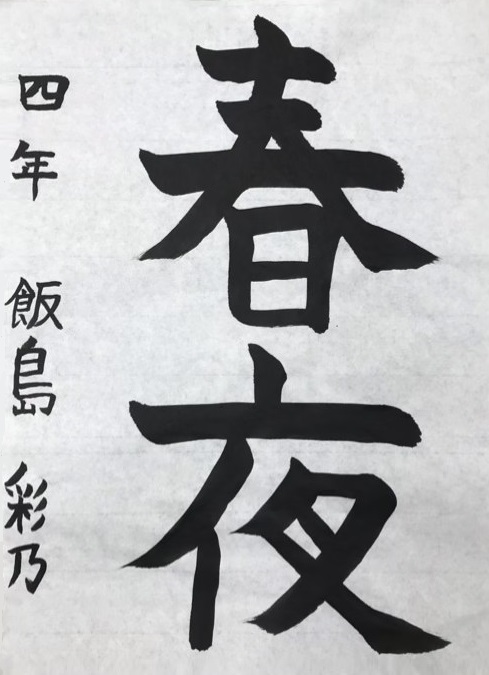 春夜
四年 飯島 彩乃